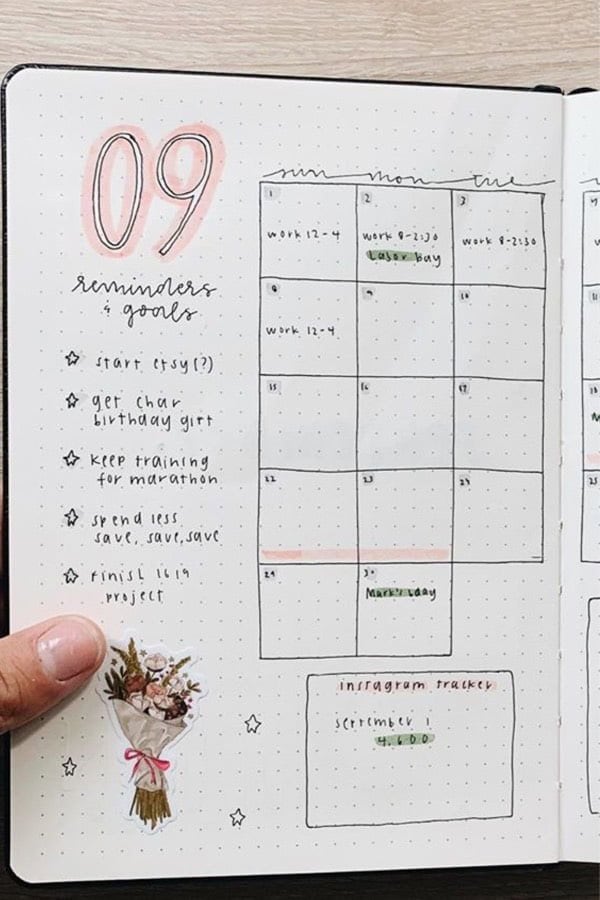 09
reminders
& goals
☆ start etsy(?)
☆ get char
birthday gift
☆ keep training
for marathon
☆ spend less
save, save, save
☆ finish 1619
project
sun mon tue
1 2 3
work 12-4 work 8-2:30 work 8-2:30
Labor Day
8 9 10
work 12-4
15 16 17
22 23 24
29 30
Mark's bday
instagram tracker
september 1
4,600